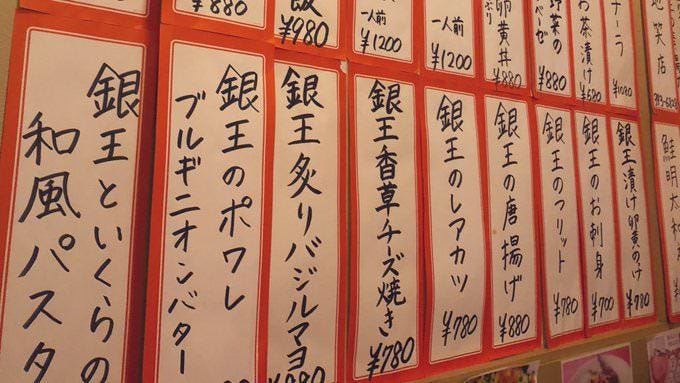 ¥880
飯
¥980
一人前
¥1200
一人前
¥1200
卵黄丼
¥880
野菜の
¥880
お茶漬け
¥580
¥1080
銀王といくらの
和風パスタ
銀王のポワレ
ブルギニオンバター
銀王炙りバジルマヨ
銀王香草チーズ焼き
¥780
銀王のレアカツ
¥780
銀王の唐揚げ
¥880
銀王のフリット
¥780
銀王のお刺身
¥700
銀王漬け卵黄のっけ
¥780
鮭明太